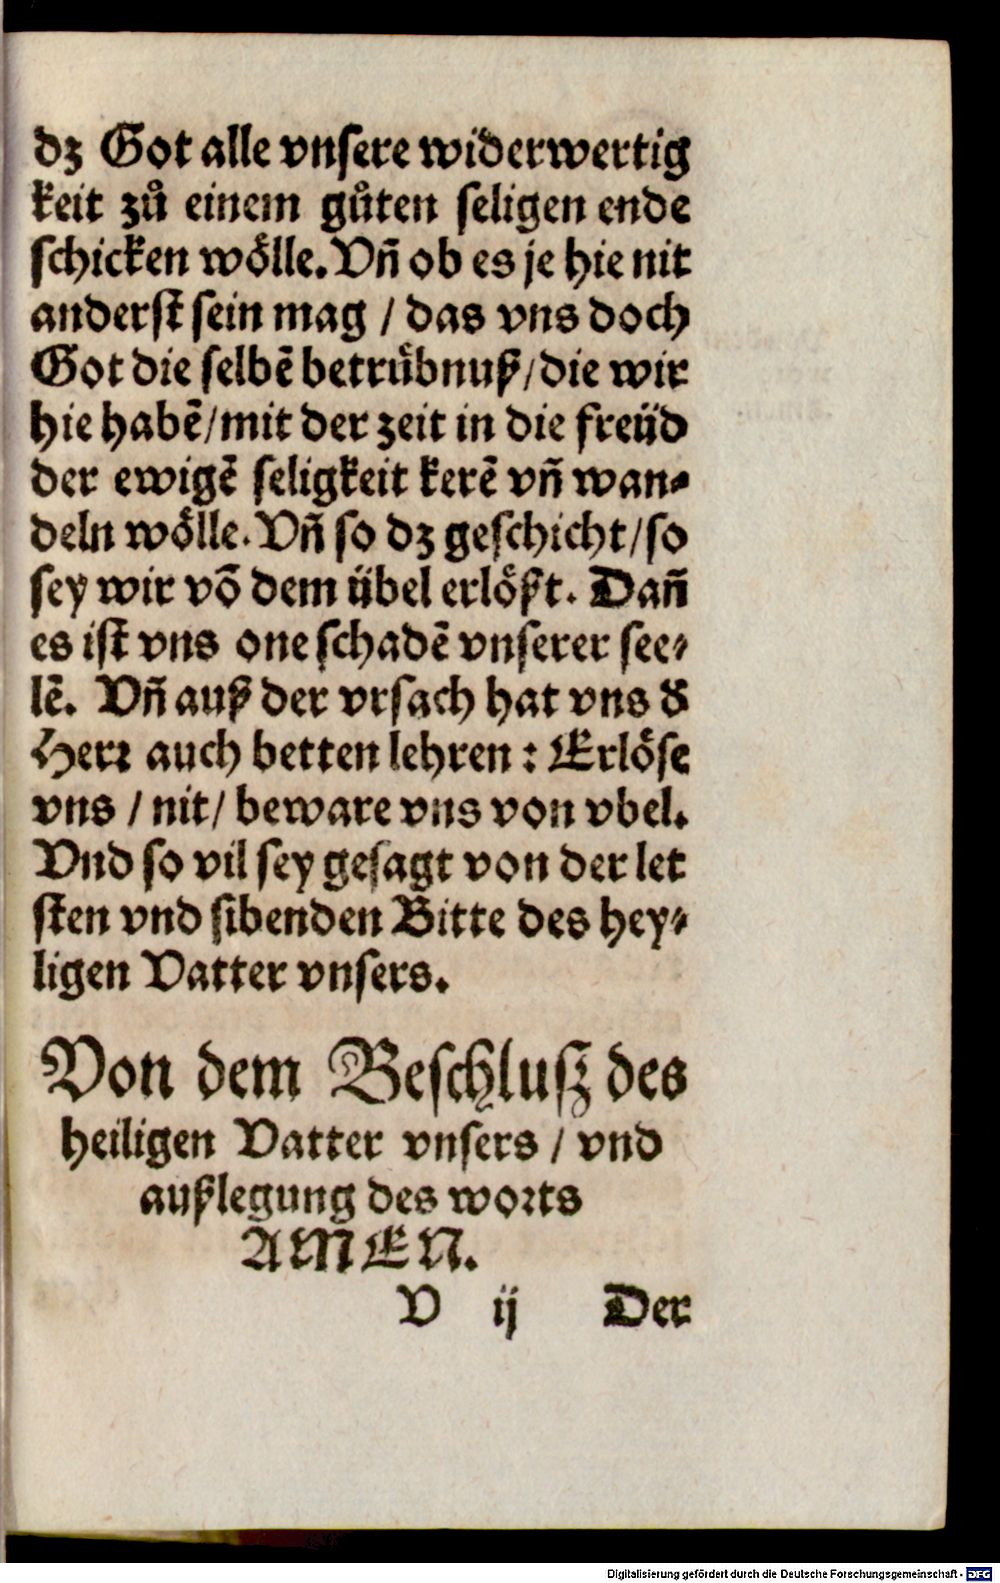 dz Got alle vnsere widerwertig
keit zů einem gůten seligen ende
schicken wölle. Vñ ob es je hie nit
anderst sein mag / das vns doch
Got die selbẽ betrübnuß/die wir
hie habẽ/mit der zeit in die freüd
der ewigẽ seligkeit kerẽ vñ wan-
deln wölle. Vñ so dz geschicht/so
sey wir võ dem übel erlößt. Dañ
es ist vns one schadẽ vnserer see-
lẽ. Vñ auß der vrsach hat vns d̕
Herr auch betten lehren : Erlöse
vns / nit/ beware vns von vbel.
Vnd so vil sey gesagt von der let
sten vnd sibenden Bitte des hey-
ligen Vatter vnsers.
Von dem Beschlusz des
heiligen Vatter vnsers / vnd
außlegung des worts
AMEN.
V ij Der
Digitalisierung gefördert durch die Deutsche Forschungsgemeinschaft - DFG